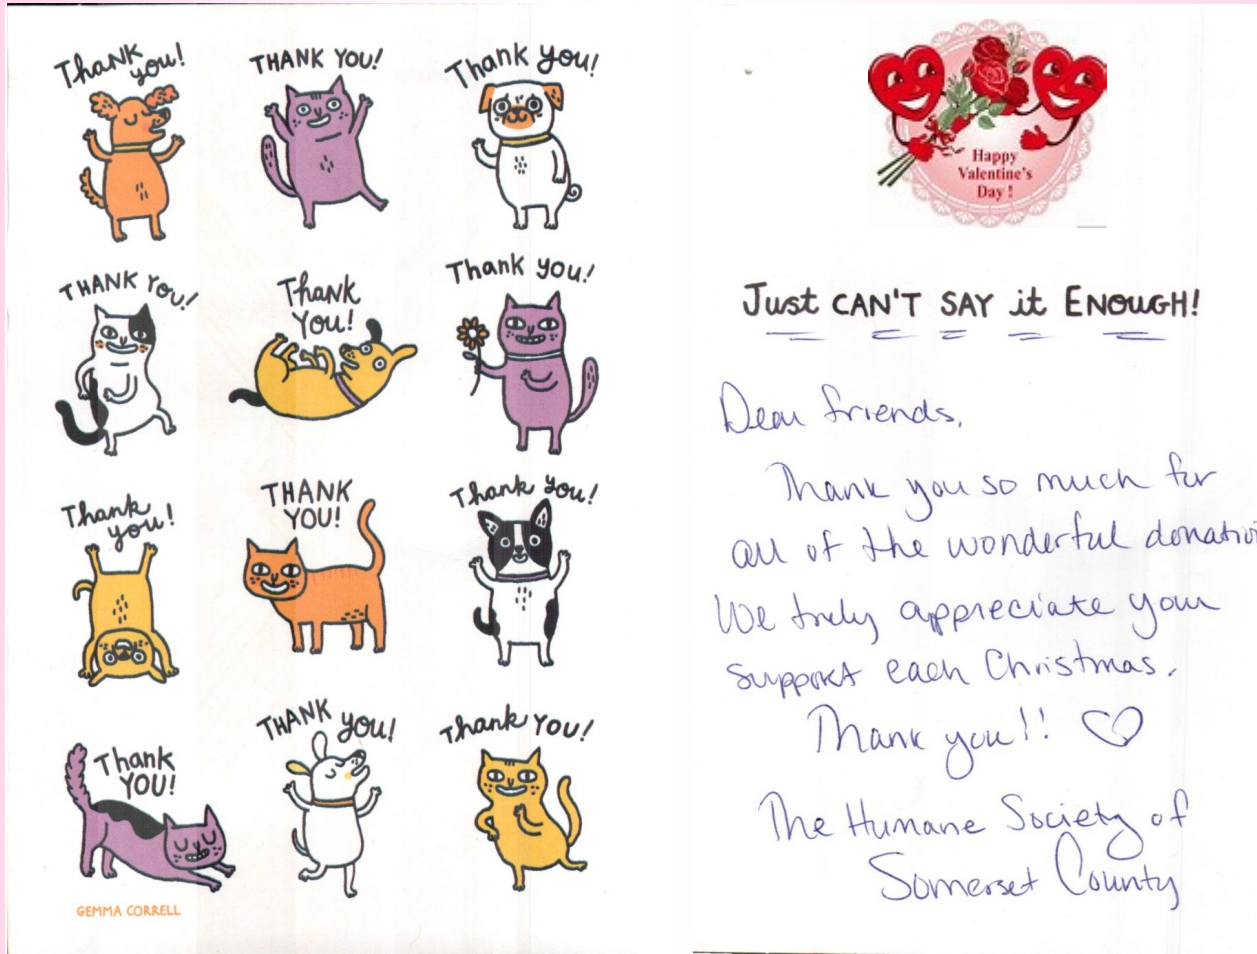 Thank
you!
THANK YOU!
Thank you!
THANK YOU!
Thank
You!
Thank you!
Thank
you!
THANK
YOU!
Thank you!
Thank
YOU!
THANK you!
Thank YOU!
GEMMA CORRELL
Happy
Valentine's
Day !
Just CAN'T SAY it ENOUGH!
Dear friends,
Thank you so much for
all of the wonderful
We truly appreciate your
support each Christmas.
Thank you!!
The Humane Society of
Somerset County